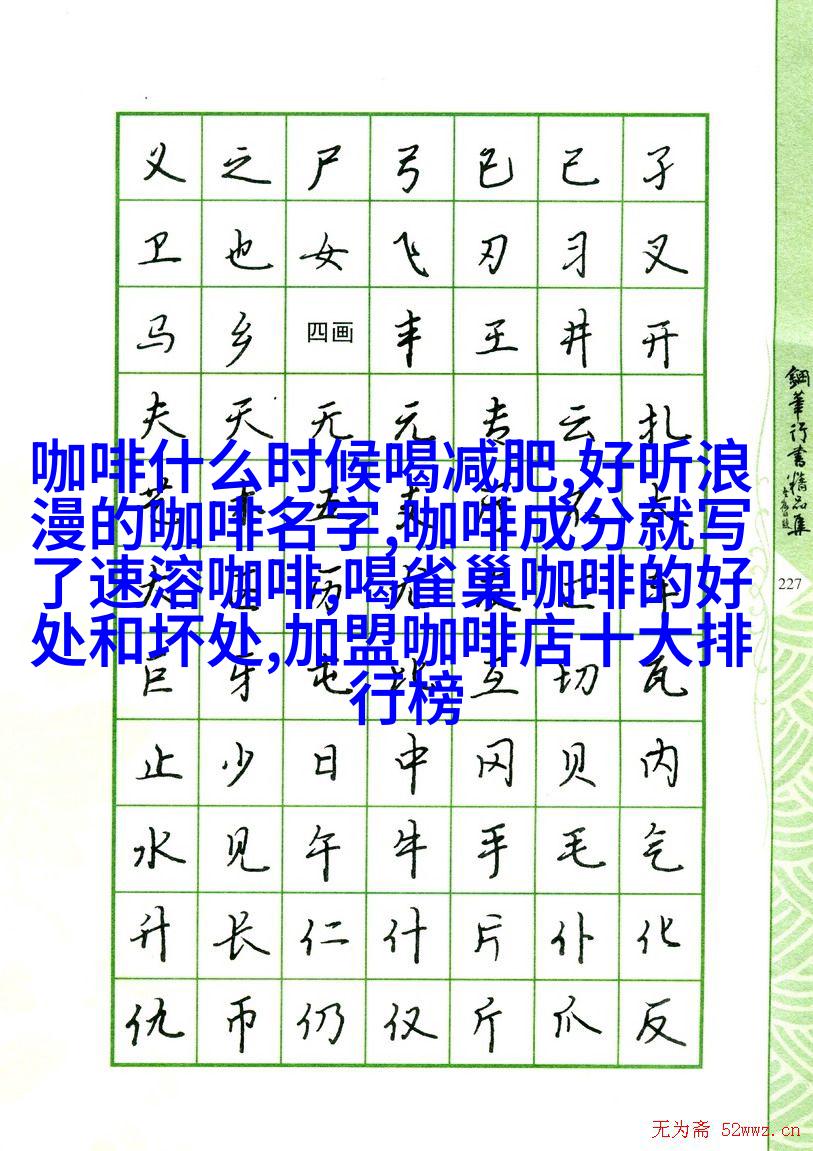 义 之 尸 弓 已 己 子
卫 也 女 飞 刃 习 叉
马 乡 四画 丰 王 井 开
夫 天 无 元 专 云 扎
咖啡什么时候喝减肥,好听浪
漫的咖啡名字,咖啡成分就写
了速溶咖啡,喝雀巢咖啡的好
处和坏处,加盟咖啡店十大排
行榜
巨 牙 屯 比 互 切 瓦
止 少 日 中 冈 贝 内
水 见 午 牛 手 毛 气
升 长 仁 什 片 仆 化
仇 币 仍 仅 斤 爪 反
钢笔行书精品集
227
无为斋 52wwz.cn